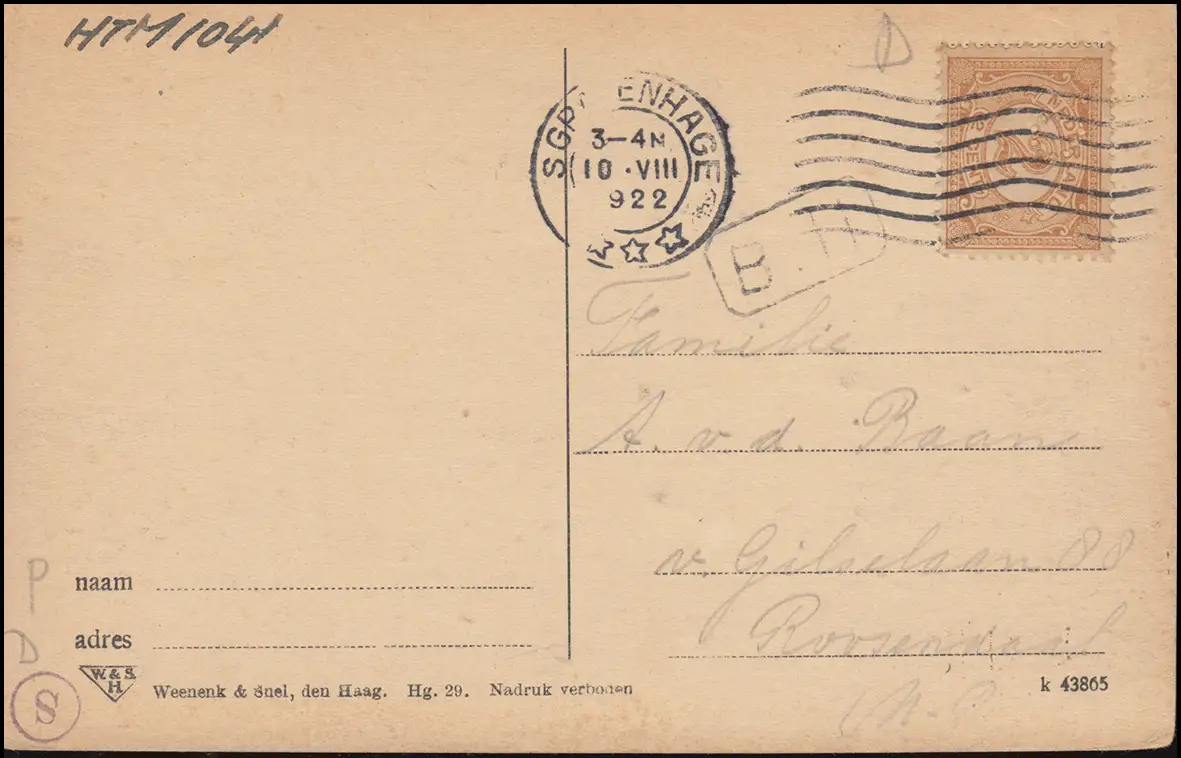 HTM 1041
D
S GR ENHAGE
3-4 N
10 .VIII
922
B.H
Familie
A. v. d. Baan
v. Gilselaan 88
Roosendaal
P
naam
D
adres
W. & S.
H.
S
Weenenk & Snel, den Haag. Hg. 29. Nadruk verboden
k 43865